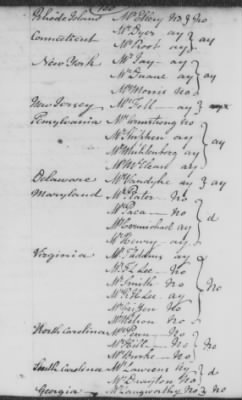 Rhode Island Mr. Ellery no } no
Connecticut Mr. Dyer ay } ay
Mr. Root ay
New York Mr. Jay ay } ay
Mr. Duane ay
Mr. Morris no
New Jersey Mr. Fell ay }
Pennsylvania Mr. Armstrong no } ay
Mr. Shippen ay
Mr. Muhlenberg ay
Mr. McLean ay
Delaware Mr. Vandyke ay } ay
Maryland Mr. Plater no } d
Mr. Paca no
Mr. Carmichael ay
Mr. Henry ay
Virginia Mr. Adams ay } no
Mr. F. L. Lee no
Mr. Smith no
Mr. R. H. Lee ay
Mr. Griffin no
Mr. Nelson no
North Carolina Mr. Penn no } no
Mr. Hill no
Mr. Burke no
South Carolina Mr. Laurens ay } d
Mr. Drayton no
Georgia Mr. Langworthy no } no